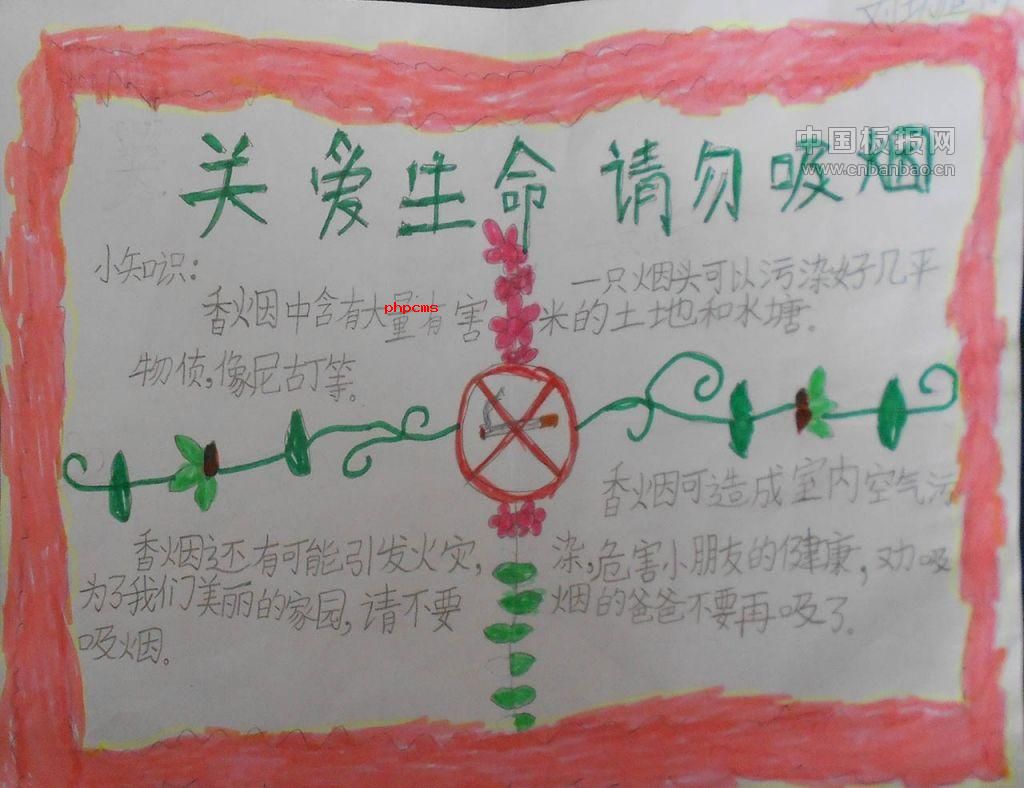 关爱生命 请勿吸烟
中国板报网
www.cnbanbao.cn
小知识：
香烟中含有大量有害
phpcms
物侦，像尼古丁等。
一只烟头可以污染好几平
米的土地和水塘．
香烟还有可能引发火灾，
为了我们美丽的家园，请不要
吸烟．
香烟可造成室内空气污
染，危害小朋友的健康，劝吸
烟的爸爸不要再吸了．